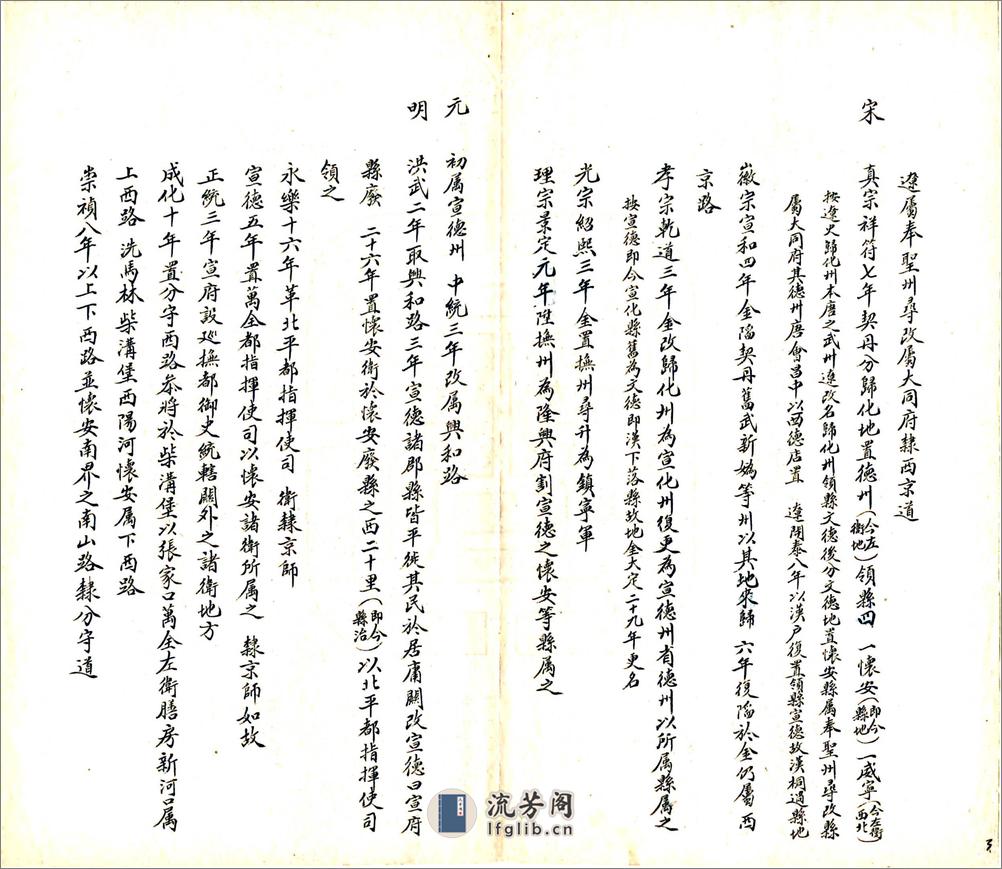 遼屬奉聖州尋改屬大同府隸西京道
宋
真宗祥符七年契丹分歸化地置德州（今左衛地）領縣四　一懷安（即今縣地）一威寧（今左衛西北）
按遼史歸化州本唐之武州遼改名歸化州領縣文德後分文德地置懷安縣屬奉聖州尋改縣
屬大同府其德州唐會昌中以西德店置　遼開泰八年以漢戶復置領縣宣德故漢桐過縣地
徽宗宣和四年金陷契丹舊武新媯等州以其地來歸　六年復陷於金仍屬西
京路
孝宗乾道三年金改歸化州為宣化州復更為宣德州省德州以所屬縣屬之
按宣德即今宣化縣舊為文德即漢下落縣故地金大定二十九年更名
光宗紹熙三年金置撫州尋升為鎮寧軍
理宗景定元年陞撫州為隆興府割宣德之懷安等縣屬之
元　初屬宣德州　中統三年改屬興和路
明　洪武二年取興和路三年宣德諸郡縣皆平徙其民於居庸關改宣德曰宣府
縣廢　二十六年置懷安衛於懷安廢縣之西二十里（即今縣治）以北平都指揮使司
領之
永樂十六年革北平都指揮使司　衛隸京師
宣德五年置萬全都指揮使司以懷安諸衛所屬之　隸京師如故
正統三年宣府設巡撫都御史統轄關外之諸衛地方
成化十年置分守西路參將於柴溝堡以張家口萬全左衛膳房新河口屬
上西路　洗馬林柴溝堡西陽河懷安屬下西路
崇禎八年以上下西路並懷安南界之南山路隸分守道
流芳阁
lfglib.cn
3